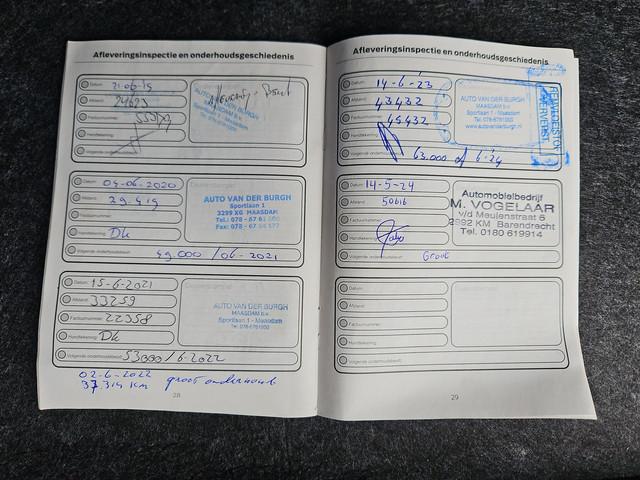 Afleveringsinspectie en onderhoudsgeschiedenis
Datum:
Afstand:
Factuurnummer:
Handtekening:
Volgende onderhoudsbeurt:
AUTO VAN DER BURGH
MAASDAM b.v.
Datum: 04-06-2020
Afstand: 29.419
Factuurnummer:
Handtekening: Dk
Volgende onderhoudsbeurt: 49.000 / 06-2021
AUTO VAN DER BURGH
Sportlaan 1
3299 XG MAASDAM
Datum: 15-6-2021
Afstand: 33259
Factuurnummer: 22358
Handtekening: Dk
Volgende onderhoudsbeurt: 53000/6-2022
AUTO VAN DER BURGH
MAASDAM b.v.
Sportlaan 1 - Maasdam
Tel. 078-6761800
02-6-2022 groot onderhoud
37.314 KM
28
Afleveringsinspectie en onderhoudsgeschiedenis
Datum: 14-6-'23
Afstand: 43432
Factuurnummer: 45432
Handtekening:
Volgende onderhoudsbeurt: 63.000 of 6-'24
AUTO VAN DER BURGH
MAASDAM b.v.
Sportlaan 1 - Maasdam
www.autovanderburgh.nl
Datum: 14-5-24
Afstand: 50616
Factuurnummer:
Handtekening:
Volgende onderhoudsbeurt: Groot
Automobielbedrijf
M. VOGELAAR
v/d Meulenstraat 6
2992 KM Barendrecht
Tel. 0180 619914
Datum:
Afstand:
Factuurnummer:
Handtekening:
Volgende onderhoudsbeurt:
29